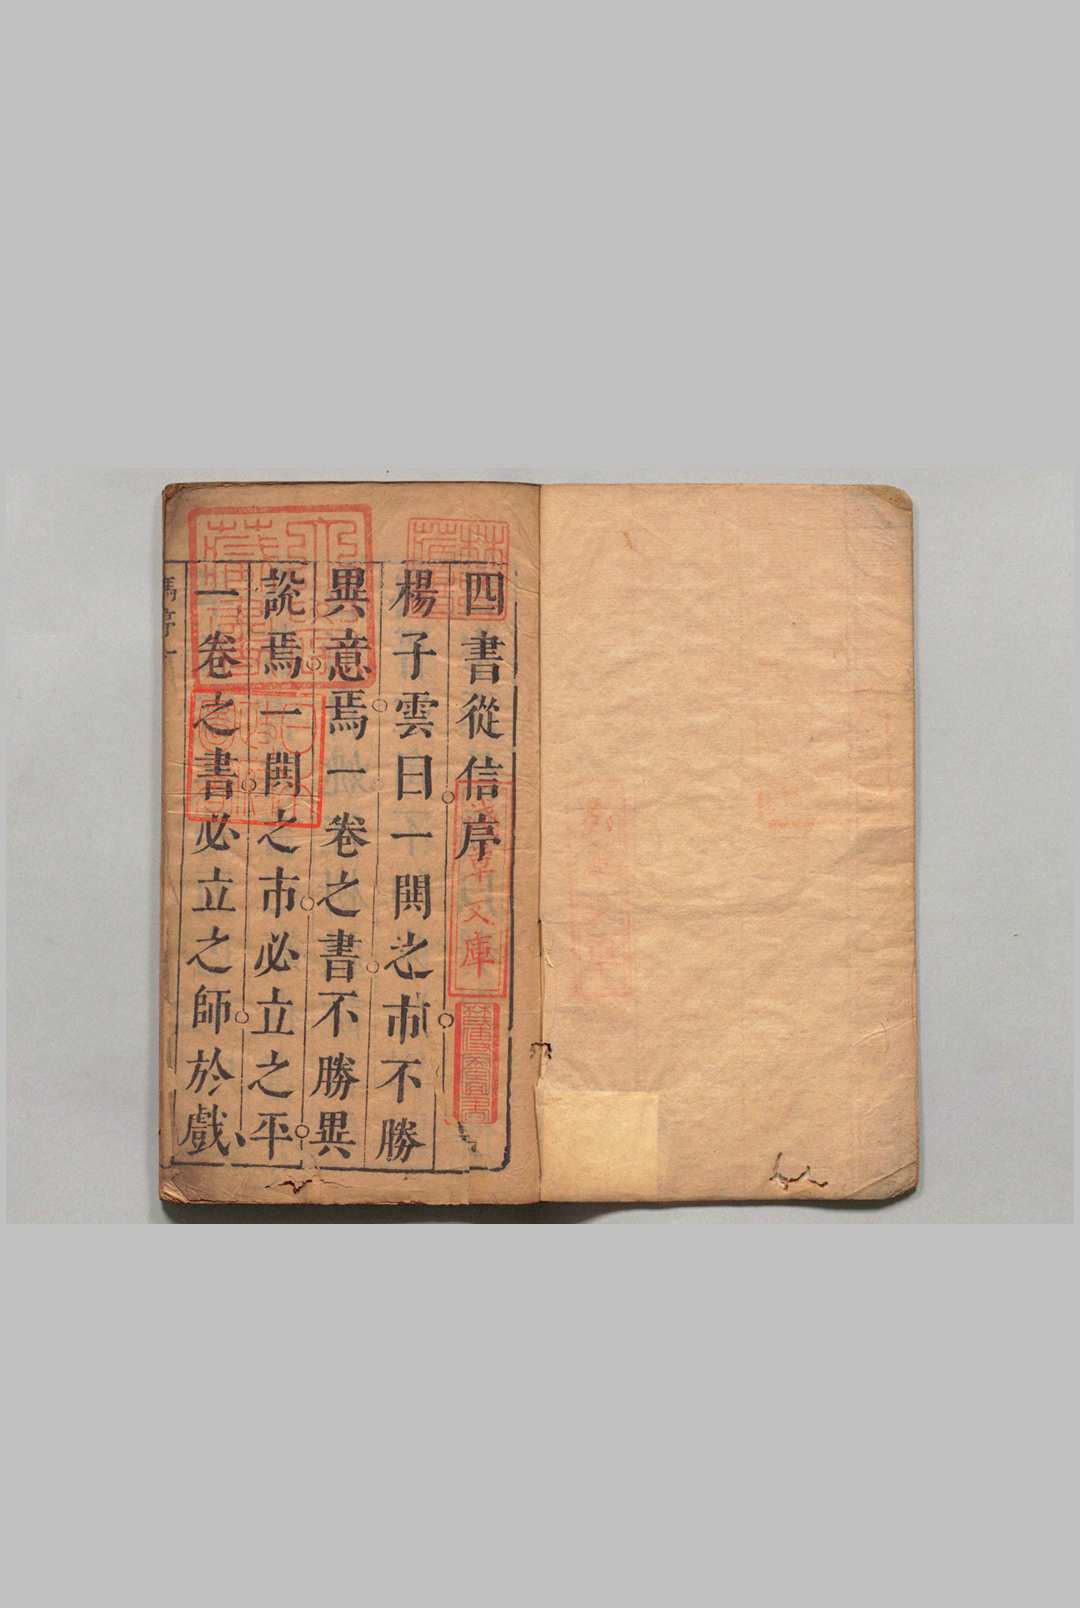 四書從信序
楊子雲曰一閧之市不勝
異意焉一卷之書不勝異
說焉一閧之市必立之平
一卷之書必立之師於戲
淺草文庫